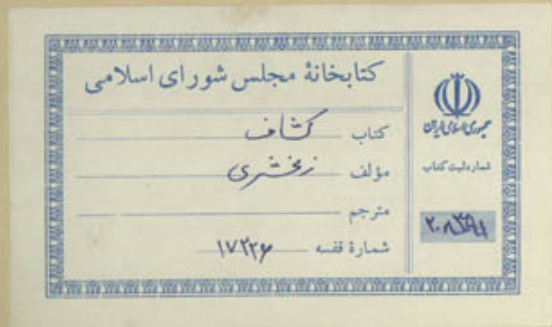 کتابخانهٔ مجلس شورای اسلامی
کتاب کشاف
مؤلف زمخشری
مترجم
شمارهٔ قفسه ۱۷۲۲۶
جمهوری اسلامی ایران
شماره ثبت کتاب